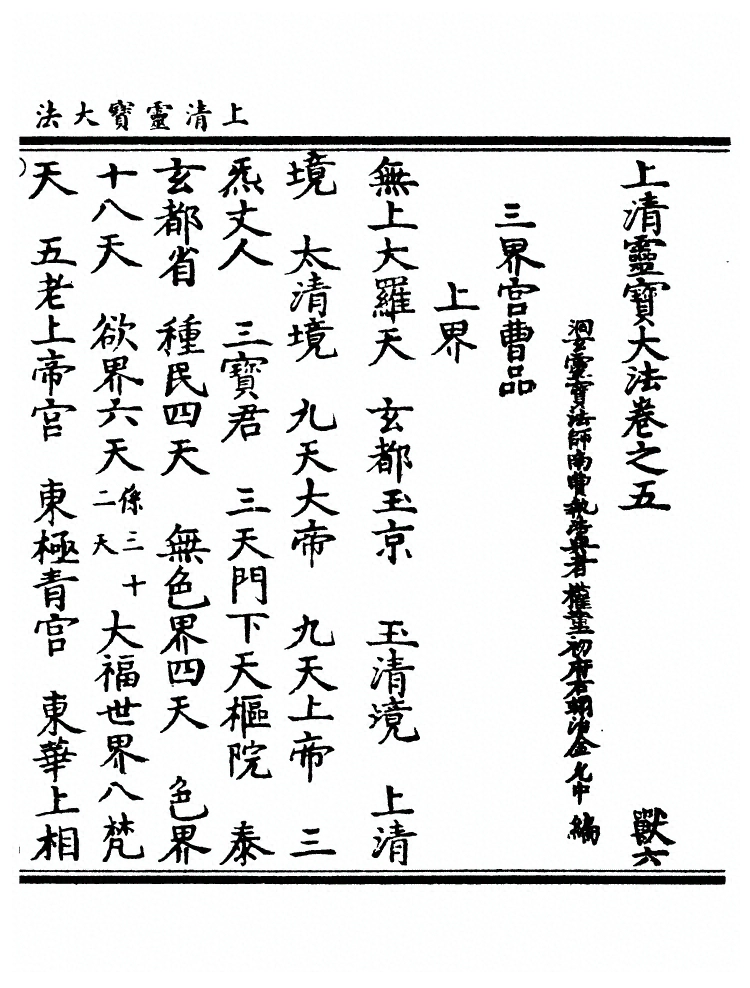 上清靈寶大法
上清靈寶大法卷之五 獸六
洞玄靈寶法師南曹執法典者權童初府右翊治金允中編
三界宮曹品
上界
無上大羅天 玄都玉京 玉清境 上清
境 太清境 九天大帝 九天上帝 三
炁丈人 三寶君 三天門下天樞院 泰
玄都省 種民四天 無色界四天 色界
十八天 欲界六天 係三十二天 大福世界八梵
天 五老上帝宮 東極青宮 東華上相